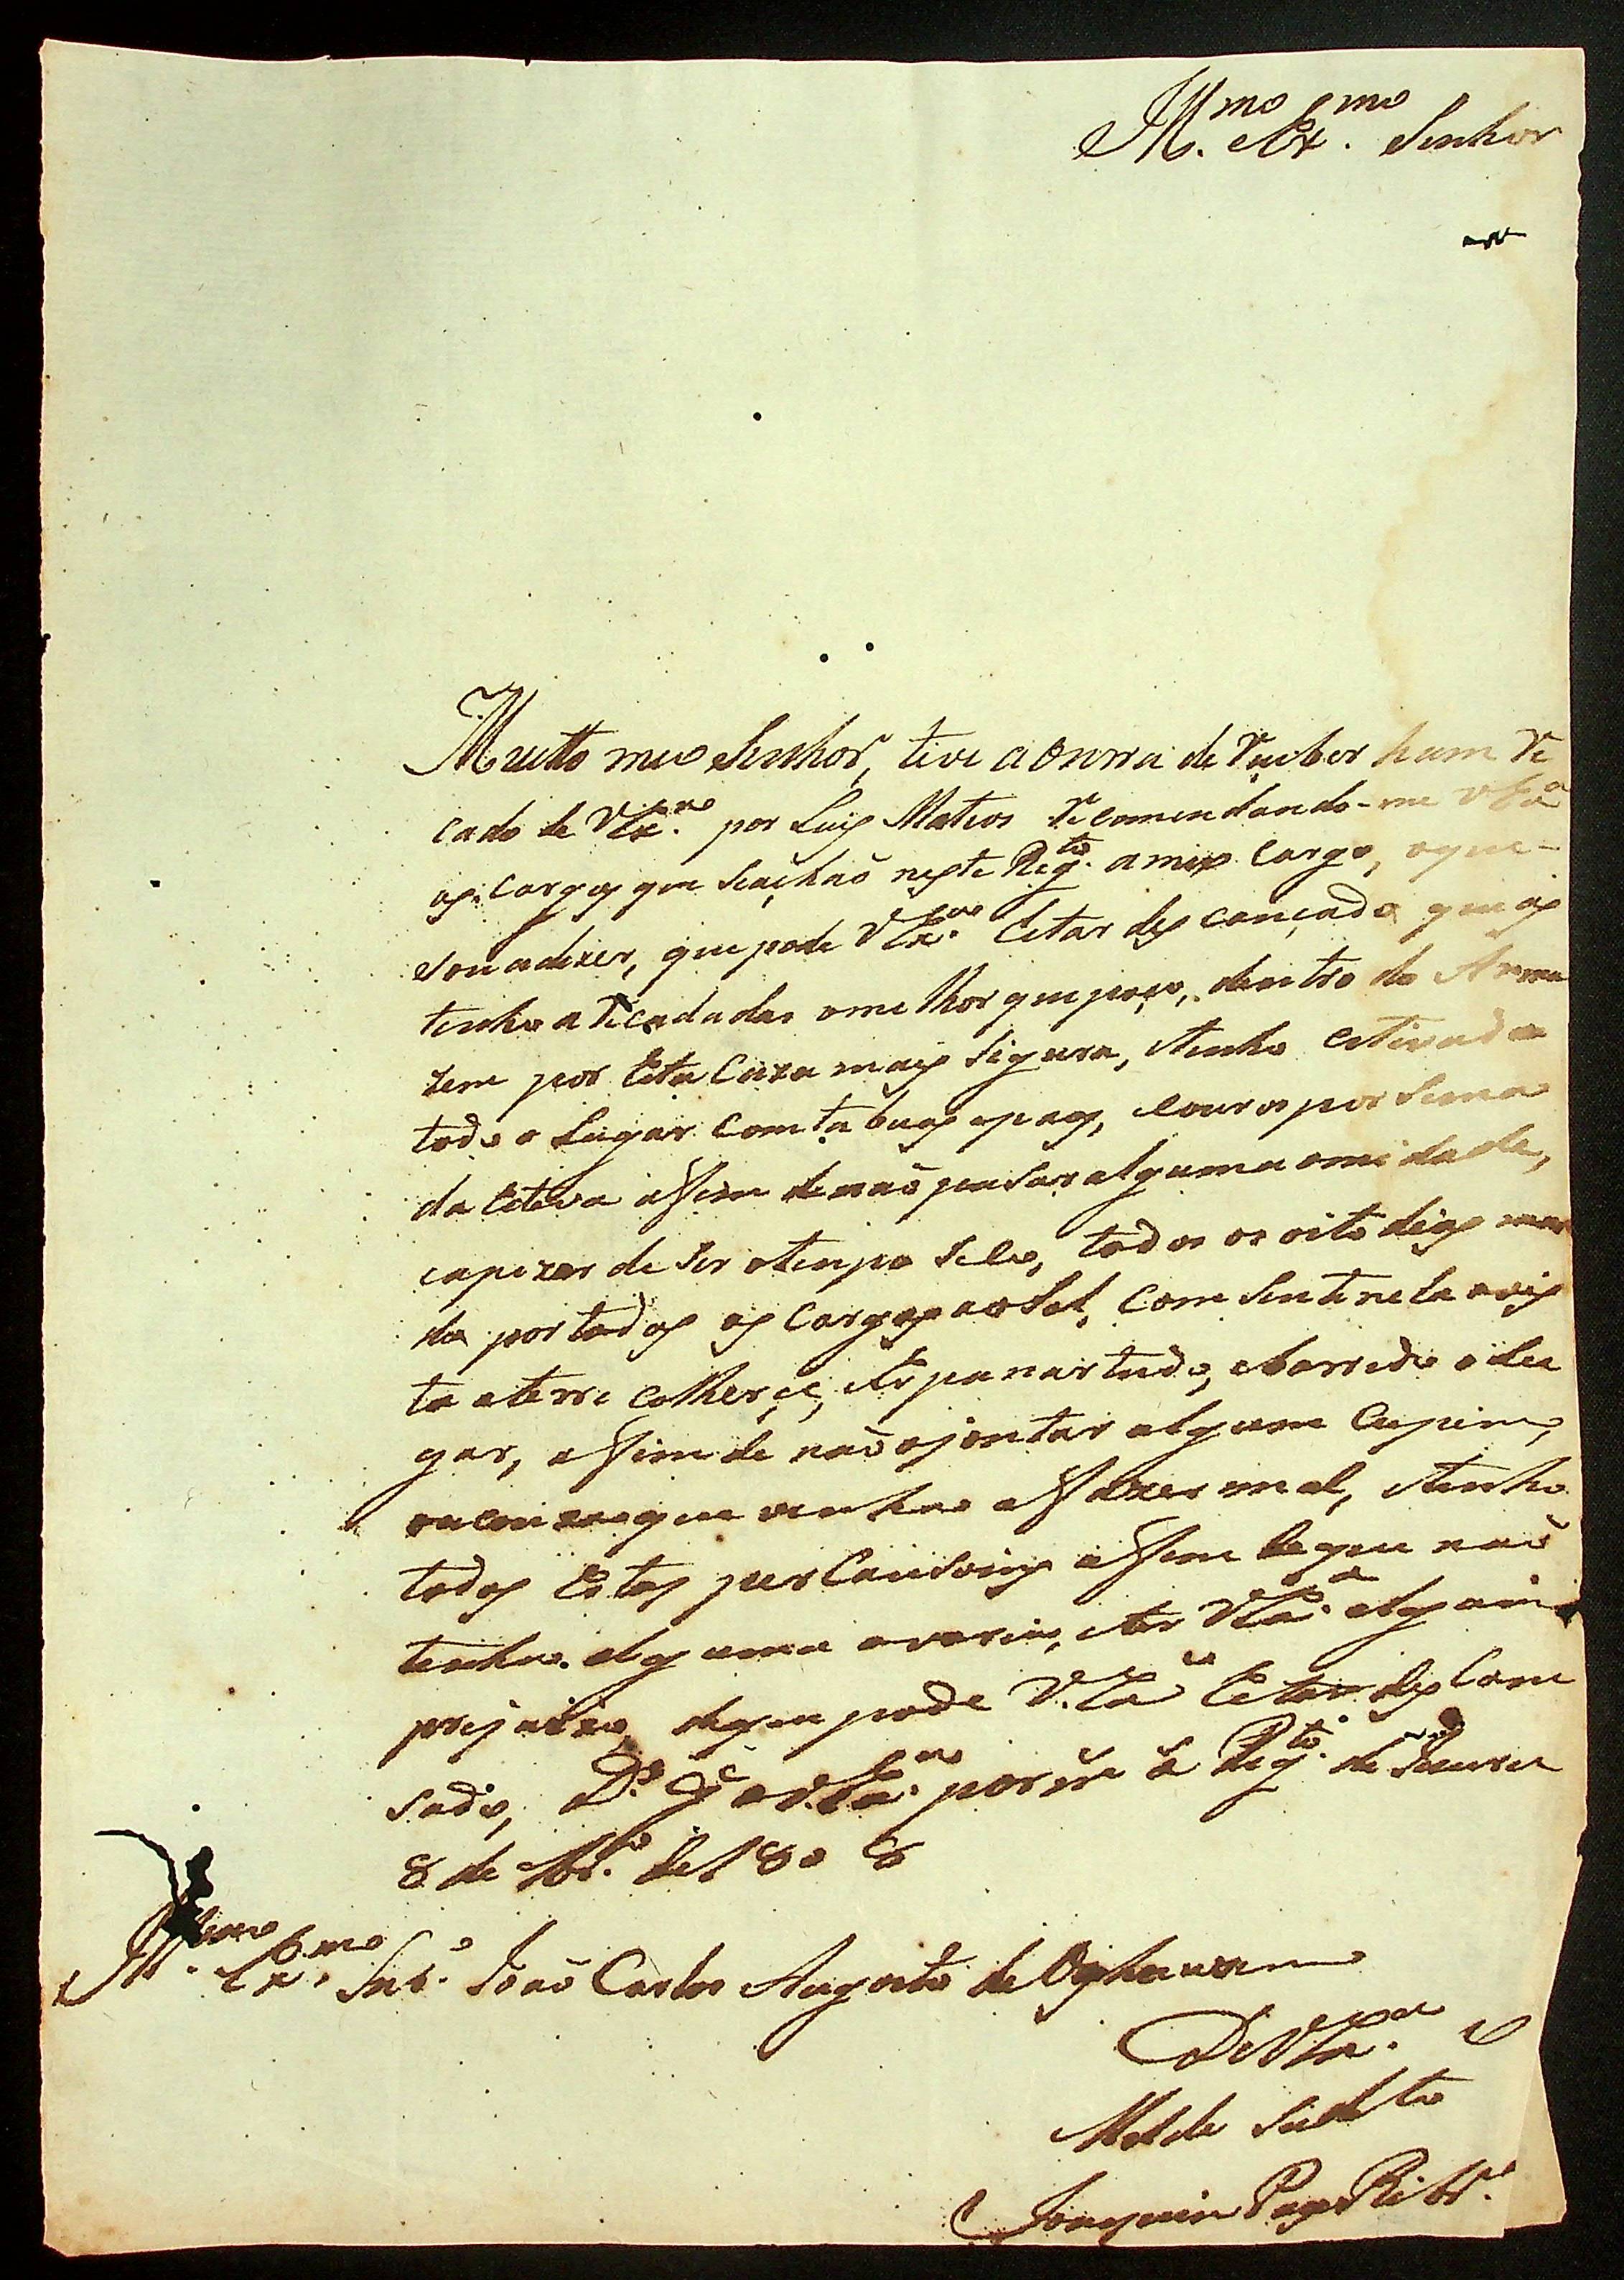 Ill.mo Ex.mo Senhor
Muitto meu Senhor, tive a onrra de Reseber hum Re
cado de VEx.cia por Luis Mateos Recomendando-me VEx.a
as Cargas que Seachaõ neste Reg.to ameu Cargo, oque
Sou adizer, que pode VEx.cia Estar descançado que as
tenho aRecadadas omelhor que poço, dentro do Arma
zem por Esta Caza mais Sigura, etenho Estivado
todo o Lugar Com tabuas epaos, eCouros por Sima
da Estiva affim denaõ pasar alguma omidade,
eapezar de Ser otenpo Seco, todos os oito dias man
do por todas as Cargas aoSol, Com Sentinela avis
ta aterre colherçe, eespanar tudo, eBarrido olu
gar, affim de naõ ajontar algum Cupim,
ou Couza que venha affazer mal, etenho
todas Estas percausois affim de que naõ
tenha alguma avaria, eter VEx.a algum
prejuizo, do que pode V.Ex.a Estar des Can
sado, D.s G.e a V.Ex.cia por m Reg.to de
8 de de 1808
Ill.mo Ex.mo Snr. Joaõ Carlos Augusto de Oyheausen
De VEx.cia
Mol.de Sudito
Joaquim Pays Rib.ro